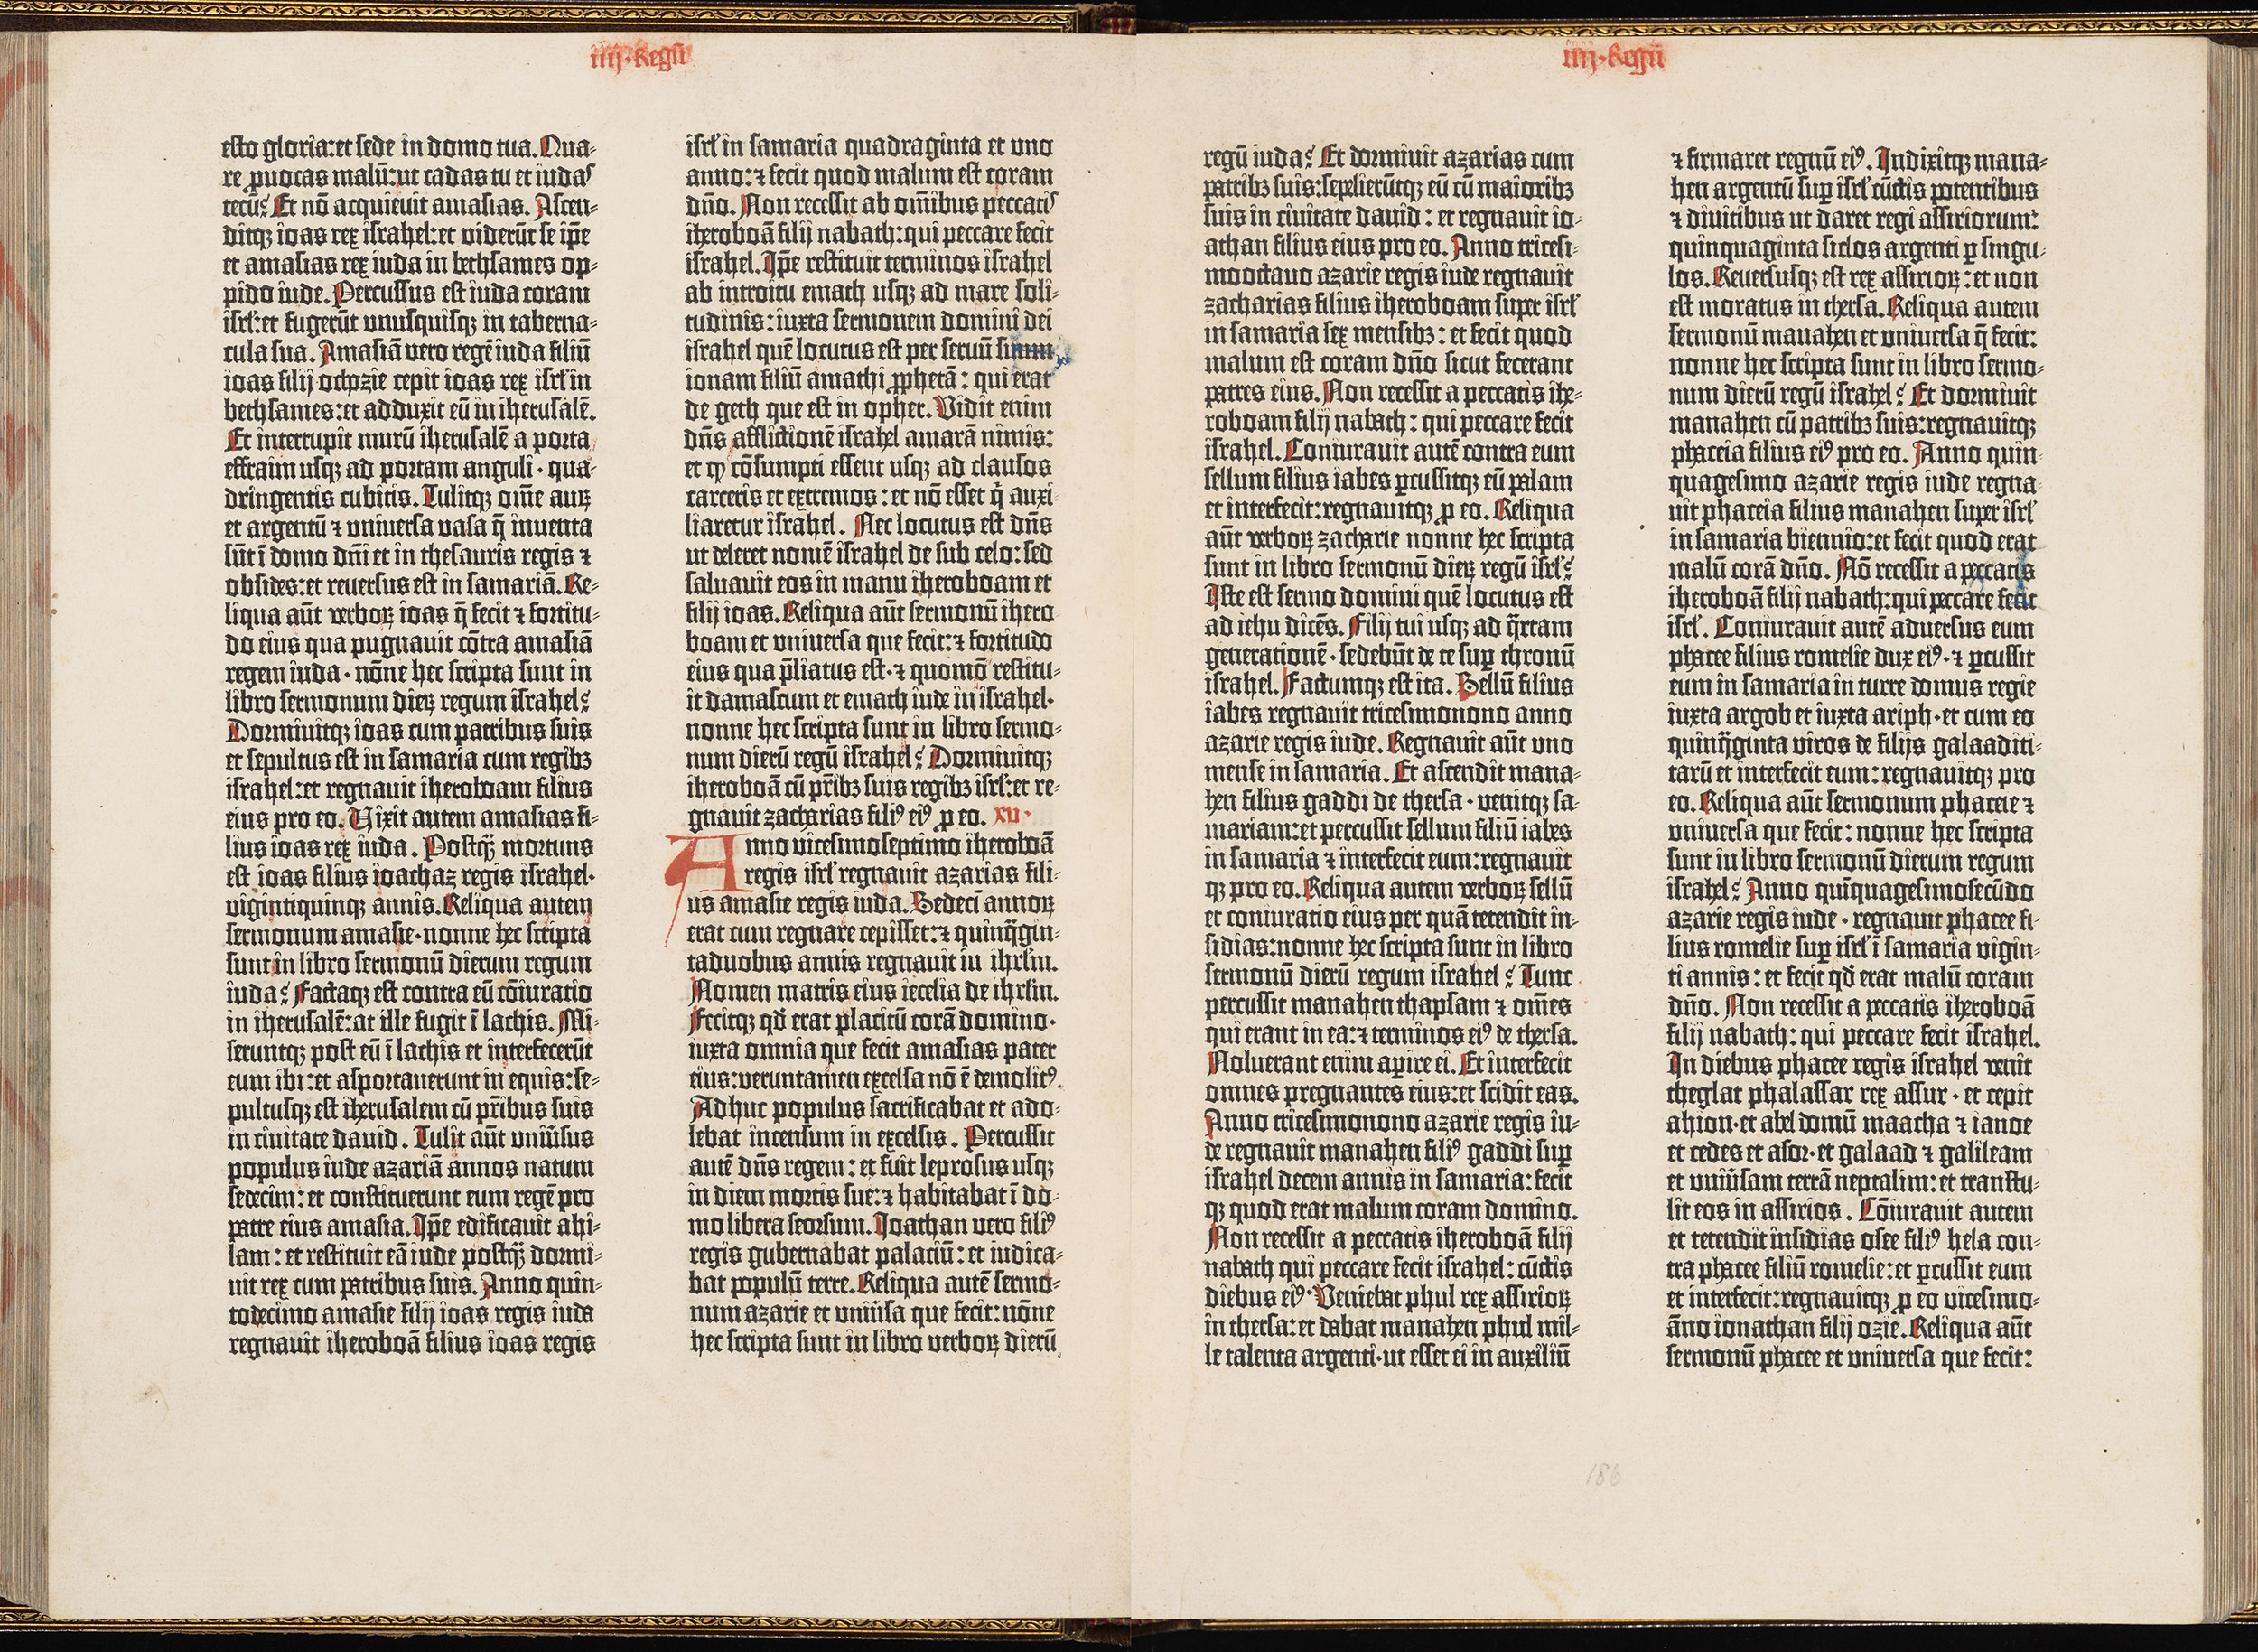 iiij·Regū
esto gloria:et sede in domo tua. Qua-
re ꝓuocas malū:ut cadas tu et iudas
tecū? Et nō acquieuit amasias. Ascen-
ditqꝫ ioas rex israhel:et viderūt se ip̄e
et amasias rex iuda in bethsames op-
pido iude. Percussus est iuda coram
isrl':et fugerūt unusquisqꝫ in taberna-
cula sua. Amasiā vero regē iuda filiū
ioas filij ochozie cepit ioas rex isrl' in
bethsames:et adduxit eū in iherusalē.
Et interrupit murū iherusalē a porta
effraim usqꝫ ad portam anguli · qua-
dringentis cubitis. Tulitqꝫ om̄e auꝝ
et argentū ⁊ universa vasa q̄ inuenta
sūt ī domo dn̄i et in thesauris regis ⁊
obsides:et reuersus est in samariā. Re-
liqua aūt verboꝝ ioas q̄ fecit ⁊ fortitu-
do eius qua pugnauit cōtra amasiā
regem iuda · nōne hec scripta sunt in
libro sermonum dieꝝ regum israhel?
Dormiuitqꝫ ioas cum patribus suis
et sepultus est in samaria cum regibꝫ
israhel:et regnauit iheroboam filius
eius pro eo. Vixit autem amasias fi-
lius ioas rex iuda. Postqꝫ̄ mortuus
est ioas filius ioachaz regis israhel·
vigintiquinqꝫ annis. Reliqua autem
sermonum amasie·nonne hec scripta
sunt in libro sermonū dierum regum
iuda? Factaqꝫ est contra eū cōiuratio
in iherusalē:at ille fugit ī lachis. Mi-
seruntqꝫ post eū ī lachis et interfecerūt
eum ibi:et asportauerunt in equis:se-
pultusqꝫ est iherusalem cū pr̄ibus suis
in ciuitate dauid. Tulit aūt univ̄sus
populus iude azariā annos natum
sedecim:et constituerunt eum regē pro
patre eius amasia. Ip̄e edificauit ahi-
lam:et restituit eā iude postqꝫ̄ dormi-
uit rex cum patribus suis. Anno quin-
todecimo amasie filij ioas regis iuda
regnauit iheroboā filius ioas regis
isrl' in samaria quadraginta et uno
anno:⁊ fecit quod malum est coram
dn̄o. Non recessit ab om̄ibus peccatis
iheroboā filij nabath:qui peccare fecit
israhel. Ip̄e restituit terminos israhel
ab introitu emath usqꝫ ad mare soli-
tudinis:iuxta sermonem domini dei
israhel quē locutus est per seruū suum
ionam filiū amathi ꝓphetā:qui erat
de geth que est in opher. Vidit enim
dn̄s afflictionē israhel amarā nimis:
et ꝙ cōsumpti essent usqꝫ ad clausos
carceris et extremos:et nō esset q̄ auxi-
liaretur israhel. Nec locutus est dn̄s
ut deleret nomē israhel de sub celo:sed
saluauit eos in manu iheroboam et
filij ioas. Reliqua aūt sermonū ihero
boam et universa que fecit:⁊ fortitudo
eius qua p̄liatus est·⁊ quomō restitu-
it damascum et emath iude in israhel·
nonne hec scripta sunt in libro sermo-
num dierū regū israhel? Dormiuitqꝫ
iheroboā cū pr̄ibꝫ suis regibꝫ isrl':et re-
gnauit zacharias filiꝰ eiꝰ ꝓ eo. xv·
Anno vicesimoseptimo iheroboā
regis isrl' regnauit azarias fili-
us amasie regis iuda. Sedecī annoꝝ
erat cum regnare cepisset:⁊ quinq̄gin-
taduobus annis regnauit in ihrl'm.
Nomen matris eius iecelia de ihrl'm.
Fecitqꝫ qd̄ erat placitū corā domino·
iuxta omnia que fecit amasias pater
eius:veruntamen excelsa nō ē demolitꝰ.
Adhuc populus sacrificabat et ado-
lebat incensum in excelsis. Percussit
autē dn̄s regem:et fuit leprosus usqꝫ
in diem mortis sue:⁊ habitabat ī do-
mo libera seorsum. Joathan vero filiꝰ
regis gubernabat palaciū:et iudica-
bat populū terre. Reliqua autē sermo-
num azarie et univ̄sa que fecit:nōne
hec scripta sunt in libro verboꝝ dierū
iiij·Regū
regū iuda? Et dormiuit azarias cum
patribꝫ suis:sepelierūtqꝫ eū cū maioribꝫ
suis in ciuitate dauid:et regnauit io-
athan filius eius pro eo. Anno tricesi-
mooctauo azarie regis iude regnauit
zacharias filius iheroboam super isrl'
in samaria sex mensibꝫ:et fecit quod
malum est coram dn̄o sicut fecerant
patres eius. Non recessit a peccatis ihe-
roboam filij nabath:qui peccare fecit
israhel. Coniurauit autē contra eum
sellum filius iabes ꝑcussitqꝫ eū palam
et interfecit:regnauitqꝫ ꝓ eo. Reliqua
aūt verboꝝ zacharie nonne hec scripta
sunt in libro sermonū dieꝝ regū isrl'?
Iste est sermo domini quē locutus est
ad iehu dicēs. Filij tui usqꝫ ad q̄rtam
generationē·sedebūt de te suꝑ thronū
israhel. Factumqꝫ est ita. Sellū filius
iabes regnauit tricesimonono anno
azarie regis iude. Regnauit aūt uno
mense in samaria. Et ascendit mana-
hen filius gaddi de thersa·venitqꝫ sa-
mariam:et percussit sellum filiū iabes
in samaria ⁊ interfecit eum:regnauit
qꝫ pro eo. Reliqua autem verboꝝ sellū
et coniuratio eius per quā tetendit in-
sidias:nonne hec scripta sunt in libro
sermonū dierū regum israhel? Tunc
percussit manahen thapsam ⁊ om̄es
qui erant in ea:⁊ terminos eiꝰ de thersa.
Noluerant enim aperire ei. Et interfecit
omnes pregnantes eius:et scidit eas.
Anno tricesimonono azarie regis iu-
de regnauit manahen filiꝰ gaddi suꝑ
israhel decem annis in samaria:fecit
qꝫ quod erat malum coram domino.
Non recessit a peccatis iheroboā filij
nabath qui peccare fecit israhel:cūctis
diebus eiꝰ. Veniebat phul rex assirioꝝ
in thersa:et dabat manahen phul mil-
le talenta argenti·ut esset ei in auxiliū
⁊ firmaret regnū eiꝰ. Indixitqꝫ mana-
hen argentū suꝑ isrl' cūctis potentibus
⁊ diuitibus ut daret regi assiriorum:
quinquaginta siclos argenti ꝑ singu-
los. Reuersusqꝫ est rex assirioꝝ:et non
est moratus in thersa. Reliqua autem
sermonū manahen et universa q̄ fecit:
nonne hec scripta sunt in libro sermo-
num dierū regū israhel? Et dormiuit
manahen cū patribꝫ suis:regnauitqꝫ
phaceia filius eiꝰ pro eo. Anno quin-
quagesimo azarie regis iude regna-
uit phaceia filius manahen super isrl'
in samaria biennio:et fecit quod erat
malū corā dn̄o. Nō recessit a peccatis
iheroboā filij nabath:qui peccare fecit
isrl'. Coniurauit autē aduersus eum
phacee filius romelie dux eiꝰ·⁊ ꝑcussit
eum in samaria in turre domus regie
iuxta argob et iuxta ariph·et cum eo
quinq̄ginta viros de filijs galaaditi-
tarū et interfecit eum:regnauitqꝫ pro
eo. Reliqua aūt sermonum phaceie ⁊
universa que fecit:nonne hec scripta
sunt in libro sermonū dierum regum
israhel? Anno quinquagesimosecūdo
azarie regis iude·regnauit phacee fi-
lius romelie suꝑ isrl' ī samaria vigin-
ti annis:et fecit qd̄ erat malū coram
dn̄o. Non recessit a peccatis iheroboā
filij nabath:qui peccare fecit israhel.
In diebus phacee regis israhel venit
theglat phalassar rex assur·et cepit
ahion·et abel domū maacha ⁊ ianoe
et cedes et asor·et galaad ⁊ galileam
et univ̄sam terrā neptalim:et transtu-
lit eos in assirios. Cōiurauit autem
et tetendit insidias osee filiꝰ hela con-
tra phacee filiū romelie:et ꝑcussit eum
et interfecit:regnauitqꝫ ꝓ eo vicesimo-
āno ionathan filij ozie. Reliqua aūt
sermonū phacee et universa que fecit:
186